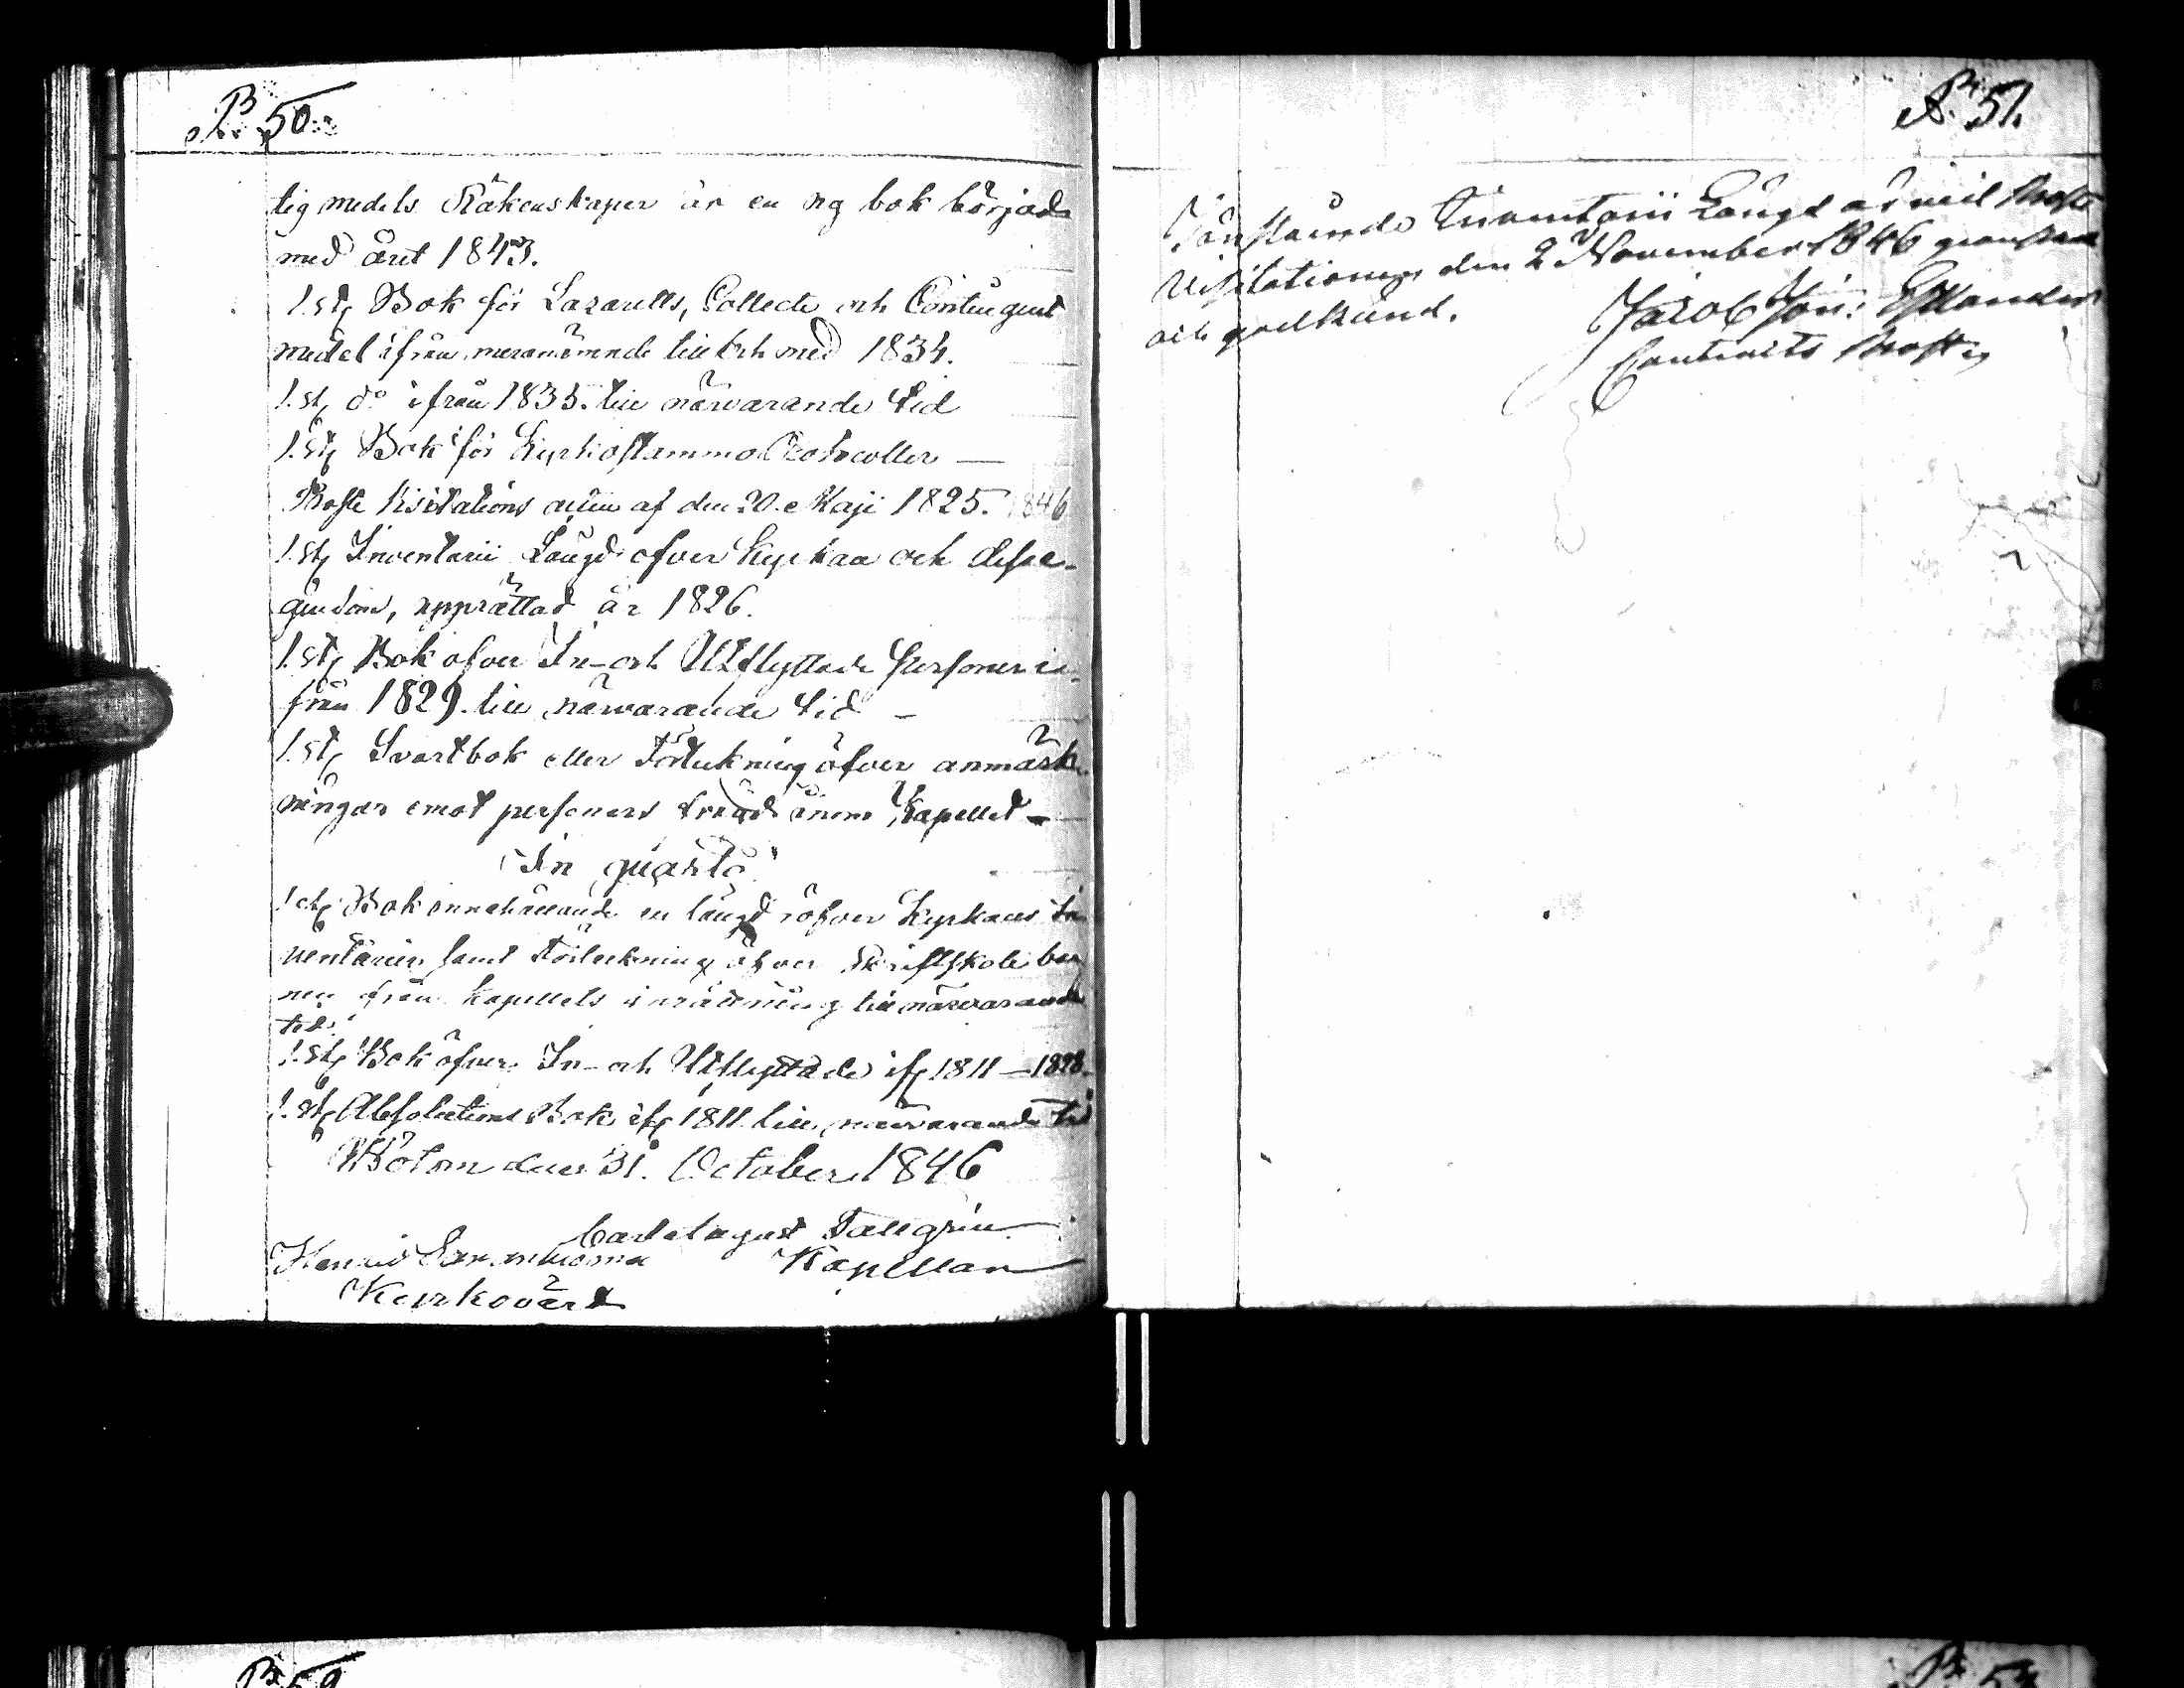 P. 50.
tig medels Räkenskaper är en ny bok börjad
med året 1843.
1. st. Bok för Lazaretts, Collect och Contingent
medel ifrån meranämnde till och med 1834.
1. st. do ifrån 1835. till närvarande tid
1. st. Bok för Kyrkostämmo Protocoller —
Proste Visitations acten af den 20. Maji 1825. 1846
1. st. Inventarii Längd öfver Kyrkan och dess e-
gendom, upprättad år 1826.
1. st. Bok öfver In- och Utflyttade personer i-
från 1829. till närvarande tid —
1. st. Svartbok eller Förtekning öfver anmärk-
ningar emot personers fräjd inom Kapellet —
In quarto
1 st. Bok innehållande en längd öfver Kyrkans In
ventarier samt Förteckning öfver Skriftskole bar
nen ifrån Kapellets inrättning till närvarande
tid.
1. st. Bok öfver In- och Utflyttade ifr 1811 — 1828.
1. st. Absolutions Bok ifr 1811 till närvarande tid
Wötom den 31. October 1846
Carl August Tallgrén
Kapellan
Henric
Kyrkovärd
P. 51.
Förestående Inventarii Längd är vid Proste
Visitationen den 2 November 1846 granskad
och godkänd.
Jacob Joh:
Contracts Prost
P. 52
P. 53